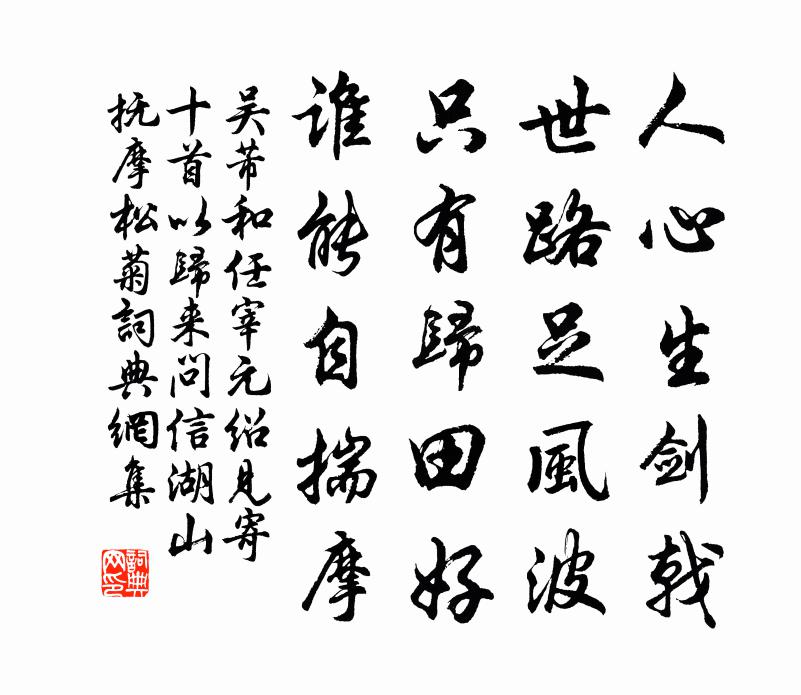 人心生劍戟
世路足風波
只有歸田好
誰能自揣摩
吴芾和任宰元绍見寄
十首以歸来問信湖山
抚摩松菊詞典網集
詞典
网印